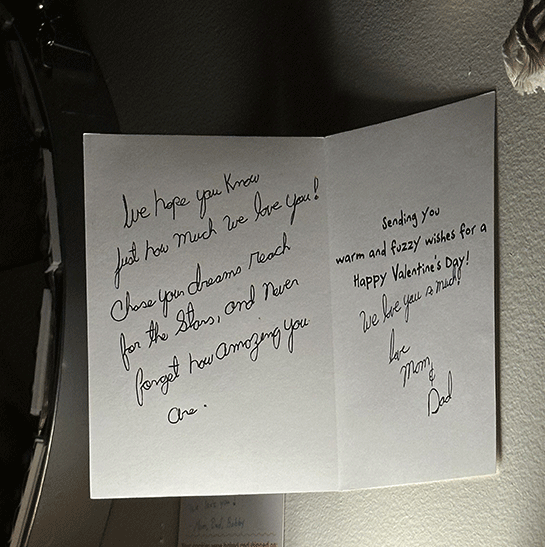 We hope you know
Just how much we love you!
Chase your dreams reach
for the Stars, and Never
forget how amazing you
are.
Sending you
warm and fuzzy wishes for a
Happy Valentine's Day!
We love you so much!
love
Mom
&
Dad
we love you!
Mom, Dad, Bobby